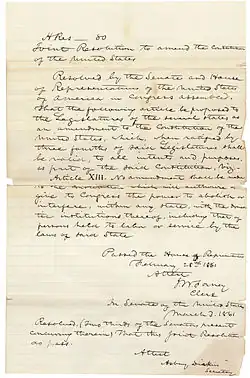 H Res — 80
Joint Resolution to amend the
of the United States
Resolved by the Senate and House
of Representatives of the United States
of America in Congress assembled,
That the following article be proposed to
the Legislatures of the several states as
an amendment to the Constitution of the
United States, which, when ratified by
three fourths of said Legislatures shall
be valid, to all intents and purposes,
as part of the said Constitution, viz:
Article XIII. No amendment shall be made
to the Constitution which will authorize or
give to Congress the power to abolish or
interfere, within any state, with the
institutions thereof, including that of
persons held to labor or service by the
laws of said State.
Passed the House of
February 28th 1861
Attest
Clerk
In Senate of the United States
March 2. 1861
Resolved, (two thirds of the Senators present
concurring therein) that this Joint Resolution
do pass.
Attest
Asbury Dickins
Secretary